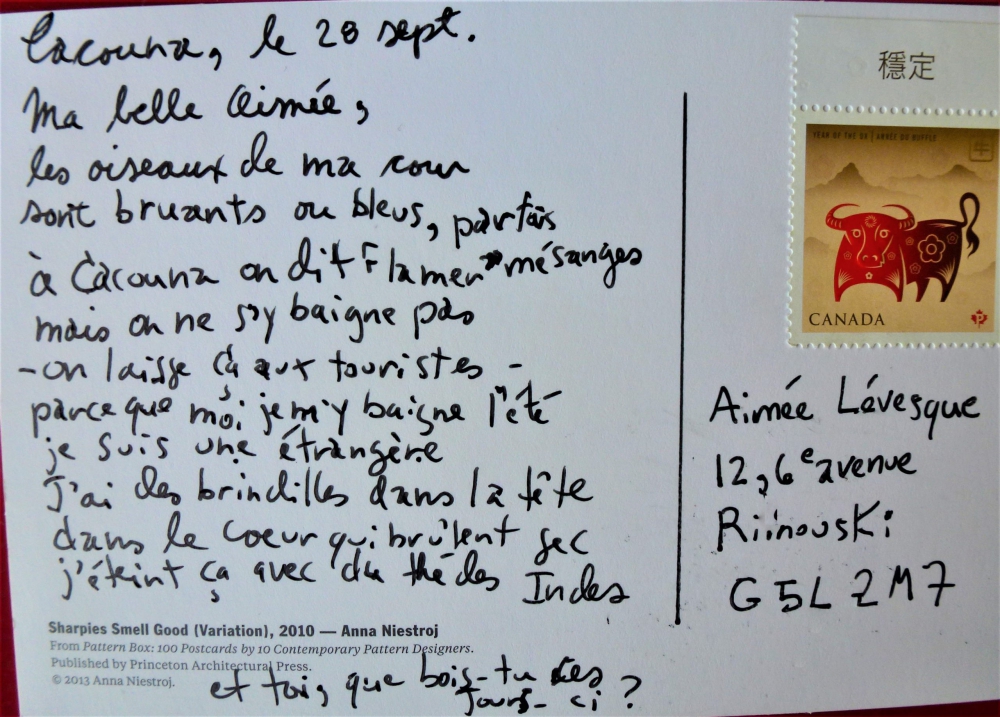 Cacouna, le 28 sept.
Ma belle Aimée,
les oiseaux de ma cour
sont bruants ou bleus, parfois mésanges
à Cacouna on dit la mer
mais on ne s'y baigne pas
- on laisse ça aux touristes -
parce que moi je m'y baigne l'été
je suis une étrangère
j'ai des brindilles dans la tête
dans le coeur qui brûlent sec
j'éteint ça avec du thé des Indes
et toi, que bois-tu ces
jours-ci ?
穩定
YEAR OF THE OX | ANNÉE DU BUFFLE
牛
CANADA
P
Aimée Lévesque
12, 6e avenue
Rimouski
G5L 2M7
Sharpies Smell Good (Variation), 2010 — Anna Niestroj
From Pattern Box: 100 Postcards by 10 Contemporary Pattern Designers.
Published by Princeton Architectural Press.
© 2013 Anna Niestroj.